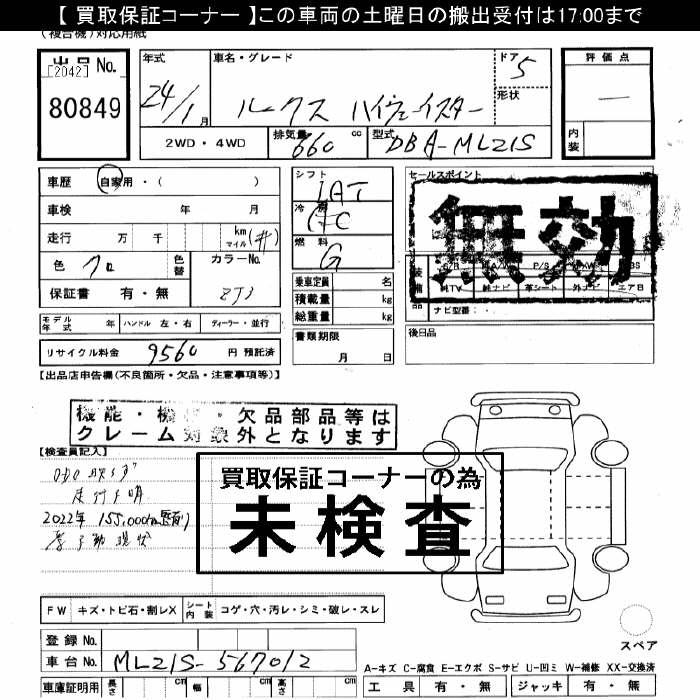 【 買取保証コーナー 】この車両の土曜日の搬出受付は17:00まで
(複合機)対応用紙
出品 No.
[2042]
80849
年式
24/1月
車名・グレード
ルークス ハイウェイスター
ドア
5
形状
評価点
内装
2WD・4WD
排気量 660 cc
型式 DBA-ML21S
車歴 自家用・( )
車検 年 月
走行 万 千 km マイル (#)
色 クロ 色替 カラーNo. ZJ3
保証書 有・無
モデル年式 年 ハンドル 左・右 ディーラー・並行
リサイクル料金 9560 円 預託済
シフト
IAT
燃料
G
乗車定員 名
積載量 kg
総重量 kg
書類期限
月 日
セールスポイント
無効
装備品
純TV 純ナビ 革シート 外ナビ エアB
ナビ型番：
後日品
【出品店申告欄(不良箇所・欠品・注意事項等)】
機能・機 ・欠品部品等は
クレーム対象外となります
【検査員記入】
走行不明
2022年 155,000km
不動現状
買取保証コーナーの為
未検査
FW キズ・トビ石・割レX シート内装 コゲ・穴・汚レ・シミ・破レ・スレ
登録 No.
車台 No. ML21S-567012
車庫証明用 長さ cm 幅 cm 高さ cm
スペア
A-キズ C-腐食 E-エクボ S-サビ U-凹ミ W-補修 XX-交換済
工具 有・無 ジャッキ 有・無